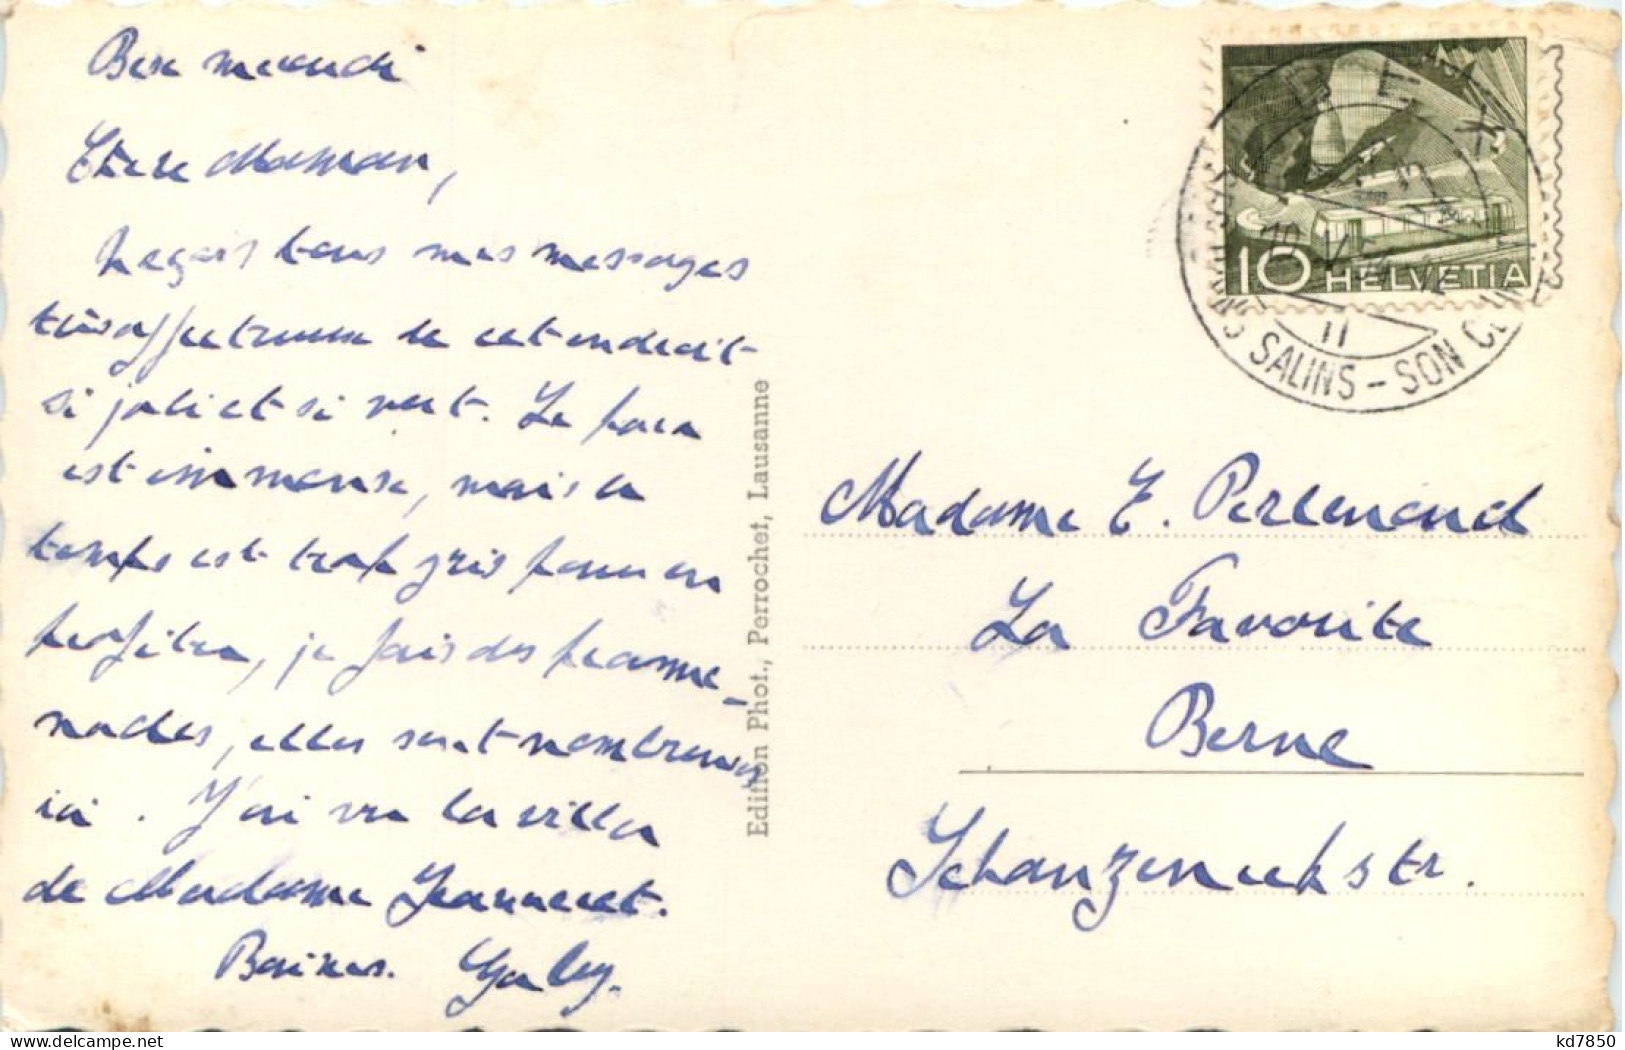 Bex mardi
Chère Maman,
Reçois tous mes messages
très affectueux de cet endroit
si joli et si vert. Le parc
est immense, mais le
temps est trop gris pour en
profiter, je fais des prome-
nades, elles sont nombreuses
ici. J'ai vu la villa
de Madame Jeanneret.
Baisers. Gaby.
Edition Phot., Perrochet, Lausanne
BEX
SALINS - SON
10 HELVETIA
Madame E. Perlenoud
La Favorite
Berne
Schanzeneckstr.
kd7850